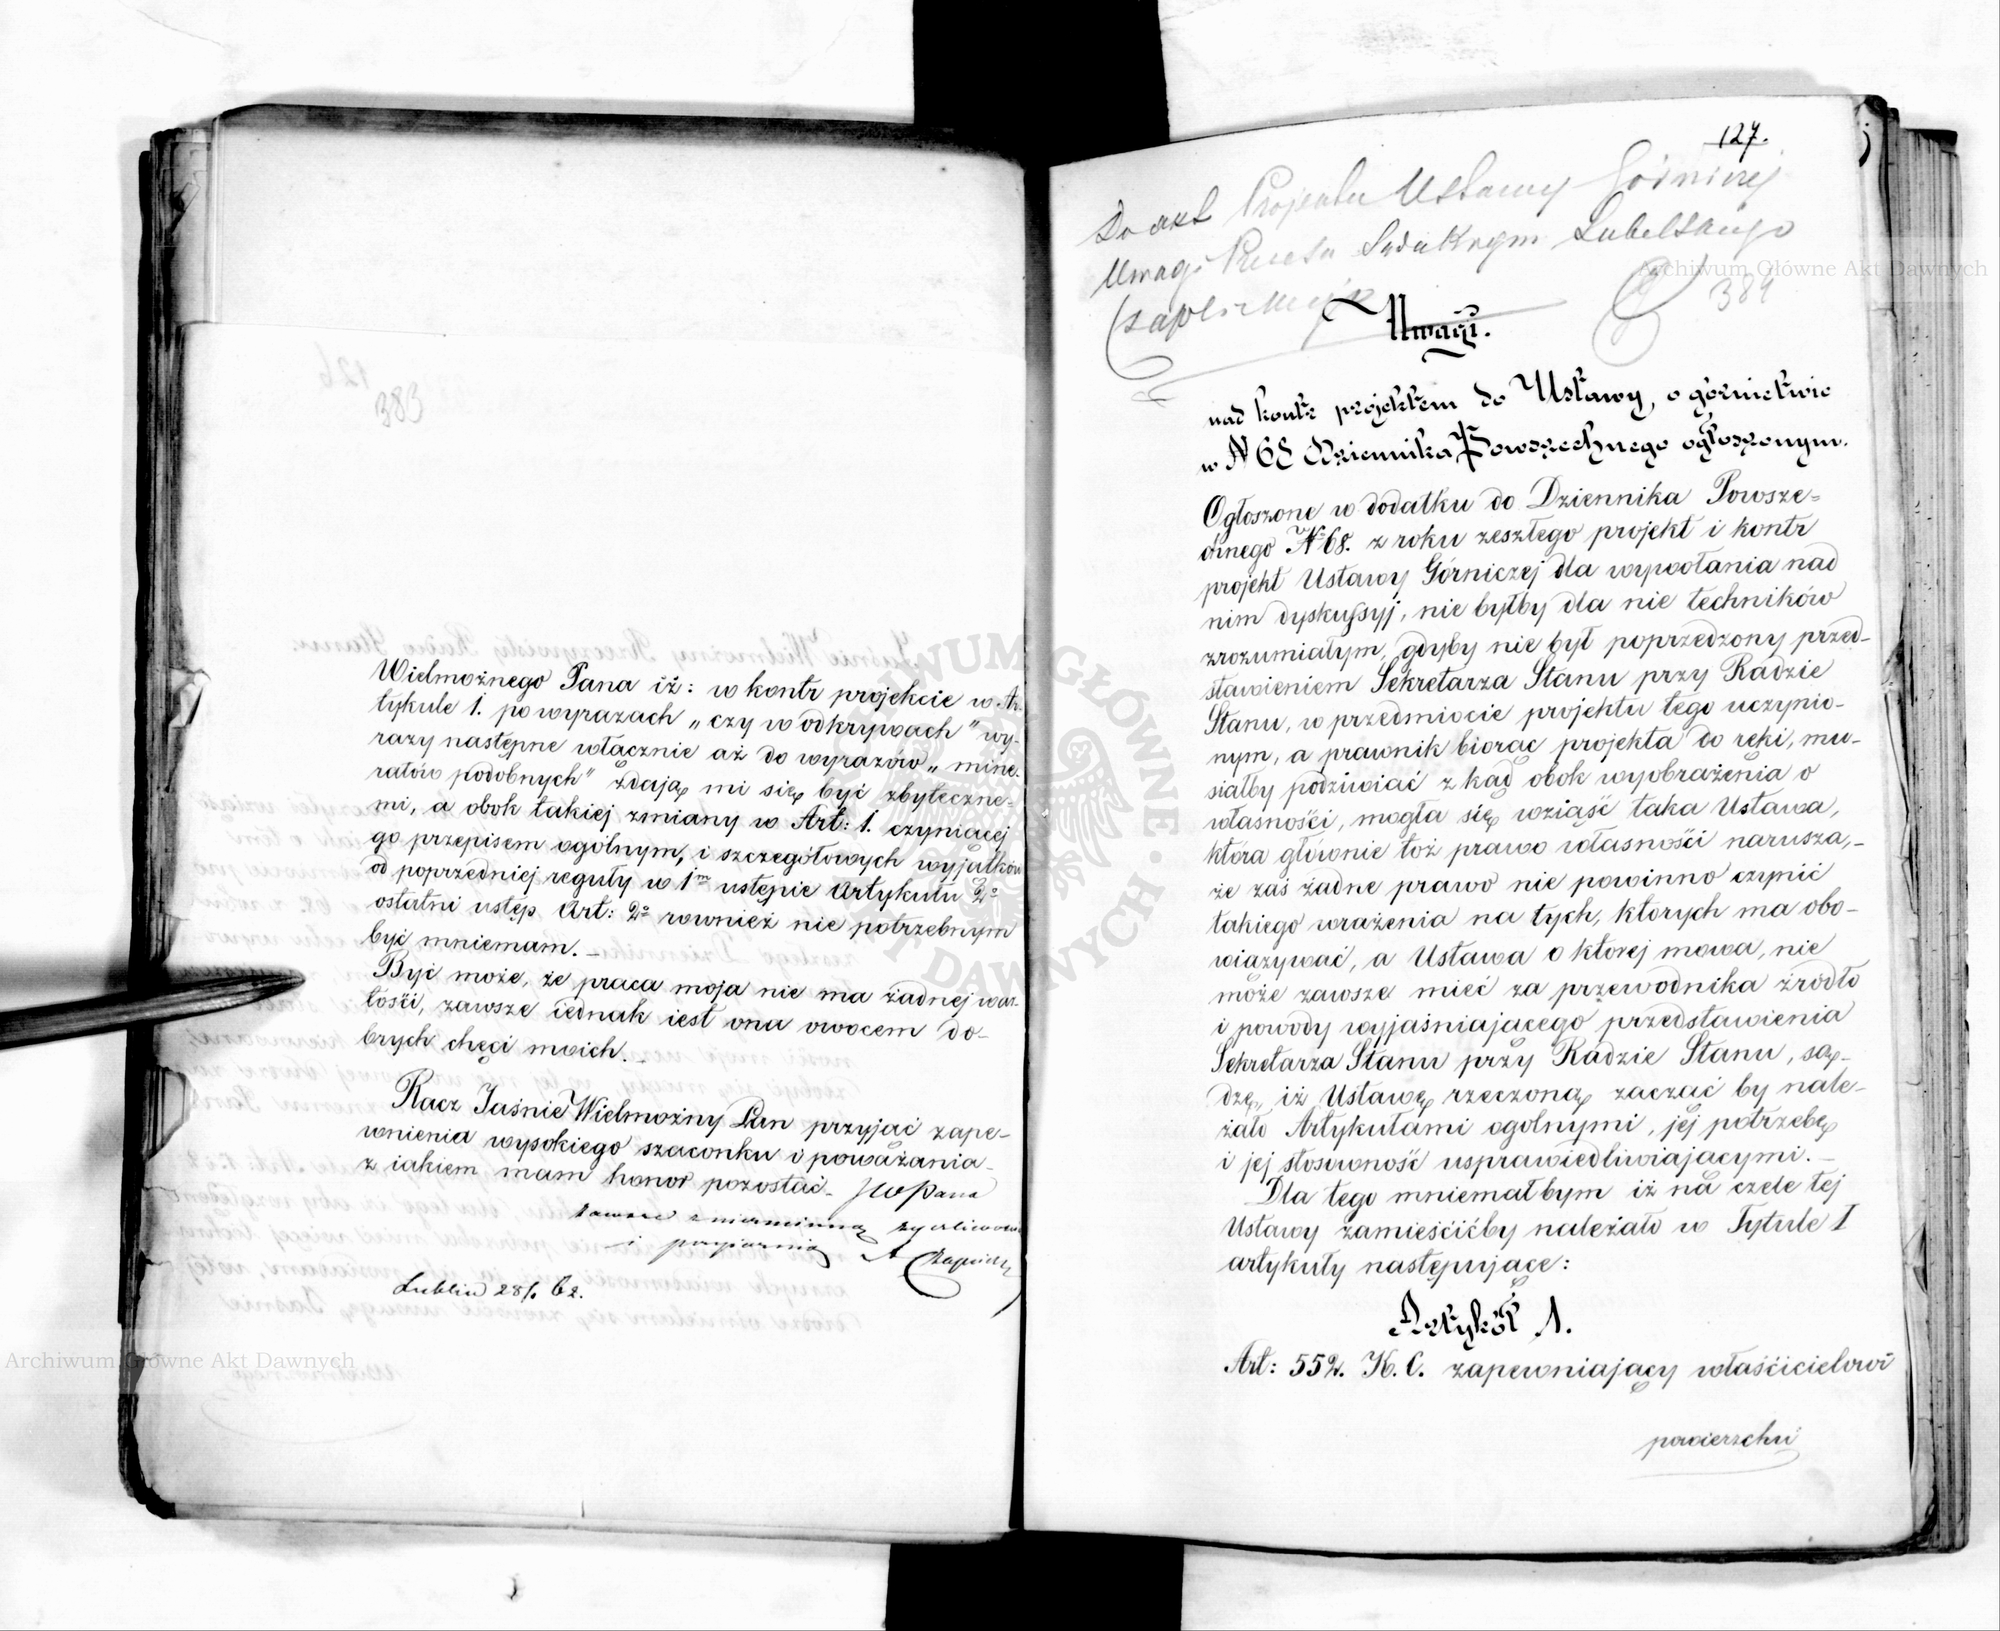 Wielmożnego Pana iż: w kontr projekcie w Ar-
tykule 1. po wyrazach „czy w odkrywach" wy-
razy następne włacznie aż do wyrazów „mine-
rałów podobnych" zdają mi się być zbyteczne-
mi, a obok takiej zmiany w Art: 1. czyniącej
go przepisem ogólnym, i szczegółowych wyjątków
od poprzedniej reguły w 1m ustępie Artykułu 2o
ostatni ustęp Art: 2o rownież nie potrzebnym
być mniemam. _
Być może, że praca moja nie ma żadnej war-
tości, zawsze iednak iest ona owocem do-
brych chęci moich. _
Racz Jaśnie Wielmożny Pan przyjąć zape-
wnienia wysokiego szacunku i poważania
z iakiem mam honor pozostać. JWPana
zawsze zniezmienną życzliwości
i przyiaźnią A
Lublin 28/. 62.
126
383
127.
Do akt Projektu Ustawy Górniczej
Uwagi Prezesa Lubelskiego
384
Uwagi.
nad kontr projektem do Ustawy, o górnictwie
w N 68 Dziennika Powszechnego ogłoszonym.
Ogłoszone w dodatku do Dziennika Powsze=
chnego No 68. z roku zeszłego projekt i kontr
projekt Ustawy Górniczej dla wywołania nad
nim dyskussyj, nie byłby dla nie techników
zrozumiałym, gdyby nie był poprzedzony przed-
stawieniem Sekretarza Stanu przy Radzie
Stanu, w przedmiocie projektu tego uczynio-
nym, a prawnik biorąc projekta do ręki, mu-
siałby podziwiać z kąd obok wyobrażenia o
własności, mogła się wziąść taka Ustawa,
która głównie toż prawo własności narusza,-
że zaś żadne prawo nie powinno czynić
takiego wrażenia na tych, ktorych ma obo-
wiązywać, a Ustawa o ktorej mowa, nie
może zawsze mieć za przewodnika źródło
i powody wyjaśniającego przedstawienia
Sekretarza Stanu przy Radzie Stanu, są-
dzę, iż Ustawę rzeczoną zacząć by nale-
żało Artykułami ogolnymi, jej potrzebę
i jej stosowność usprawiedliwiającymi. _
Dla tego mniemałbym iż na czele tej
Ustawy zamieścićby należało w Tytule I
artykuły następujące:
Artykół 1.
Art: 552. K. C. zapewniający właścicielowi
powierzchni
Archiwum Główne Akt Dawnych
Archiwum Główne Akt Dawnych
ARCHIWUM GŁÓWNE AKT DAWNYCH